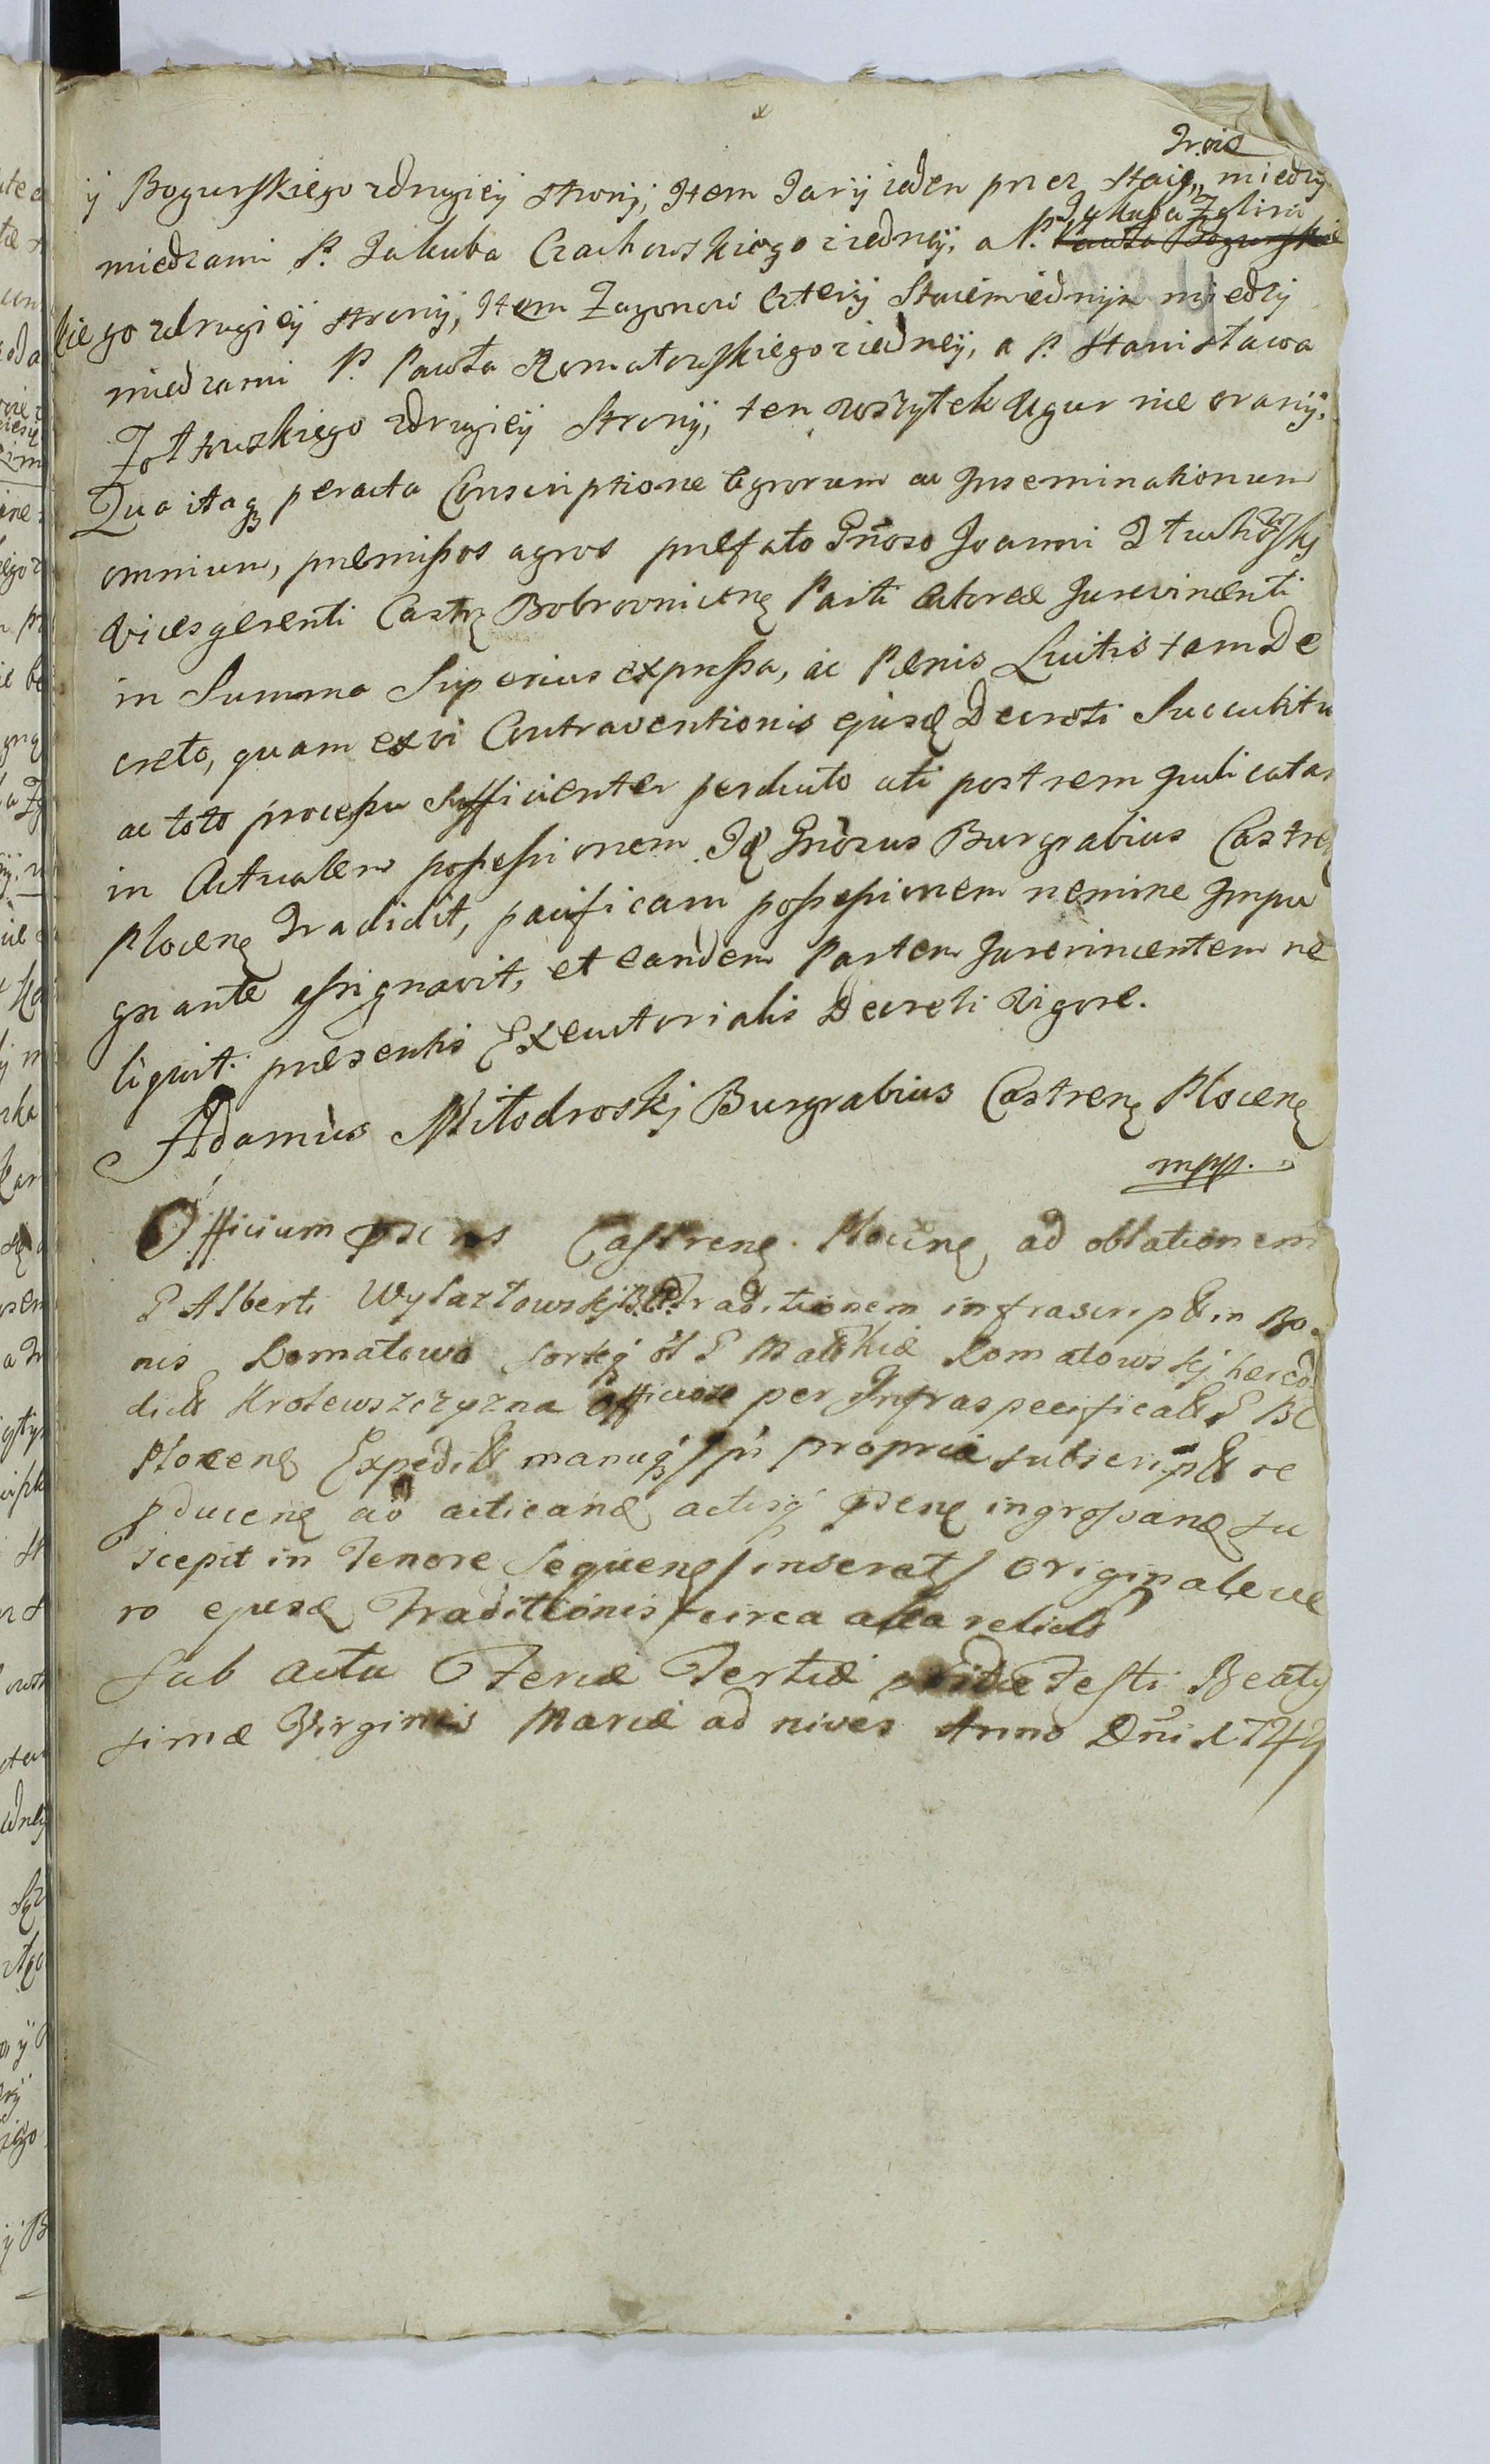 Troie
ÿ Bogurskiego zdrugieÿ stronÿ, Item Jarÿ ieden przez staię,, miedzÿ
Jakuba Zelizo
miedzami P. Jakuba Czachowskiego ziedneÿ, a P. Pawła Bogurskie
kiego zdrugieÿ stronÿ, Item Zagonow czterÿ Staiemiednÿm miedzÿ
miedzami P. Pawła Romatowskiego ziedneÿ, a P. Stanisława
Zołtowskiego zdrugieÿ Stronÿ, ten wszytek Ugur nie oranÿ.
Qua itaqꝫ peracta Conscriptione Agrorum ac Inseminationum
omnium, præmissos agros præfato Gñoso Joanni
vicesgerenti Castrę Bobrovnicenę Parti Actoreæ Jurevincenti
in Summa Superius expressa, ac Pænis Luitis tam De
creto, quam ex vi Contraventionis ejusd Decreti Succubitu
ac toto processu sufficienter perducto uti post rem Judicatam
in Actualem possessionem Id Gñosus Burgrabius Castrenę
Plocenę Tradidit, pacificam possessionem nemine Impu
gnante assignavit, et eandem Partem Jurevincentem re
liquit. præsentis Executorialis Decreti Vigore.
Adamus Miłodroskj Burgrabius Castrenę Plocenę
mpp.
Officium præns Castrenę Plocenę, ad oblationem
P Alberti Wylazłowskj Traditionem infrascript in Bo.
nis Romatowo Sorteqꝫ ol P Mathiæ Romatowskj hæred
dict Krolewszczyzna officiose per Infraspecificat P BC
Plocenę Expedit manuqꝫ sui propria subscript re
producenę ad acticand actisqꝫ præsenę ingrossand su
scepit in Tenore Sequenę / inserat / originale ve
ro ejusd Traditionis circa acta relict
Sub actu Feria Tertia pridie Festi Beatis
simæ Virginis Mariæ ad nives Anno Dñi 1749